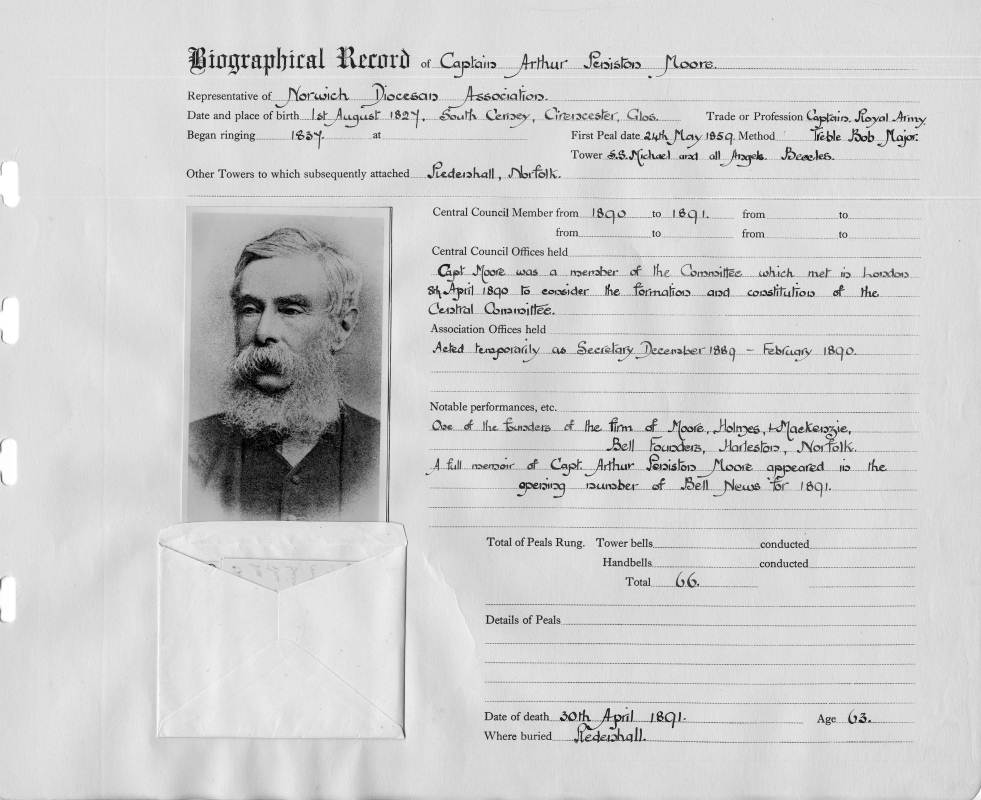 Biographical Record of Captain Arthur Peniston Moore.
Representative of Norwich Diocesan Association.
Date and place of birth 1st August 1827, South Cerney, Cirencester, Glos. Trade or Profession Captain. Royal Army.
Began ringing 1837. at First Peal date 24th May 1859. Method Treble Bob Major.
Tower S.S. Michael and all Angels. Beccles.
Other Towers to which subsequently attached Redenhall, Norfolk.
Central Council Member from 1890 to 1891. from to
from to from to
Central Council Offices held
Capt Moore was a member of the Committee which met in London
8th April 1890 to consider the formation and constitution of the
Central Committee.
Association Offices held
Acted temporarily as Secretary December 1889 – February 1890.
Notable performances, etc.
One of the founders of the firm of Moore, Holmes, & Mackenzie,
Bell Founders, Harleston, Norfolk.
A full memoir of Capt. Arthur Peniston Moore appeared in the
opening number of Bell News for 1891.
Total of Peals Rung. Tower bells conducted
Handbells conducted
Total 66.
Details of Peals
Date of death 30th April 1891. Age 63.
Where buried Redenhall.